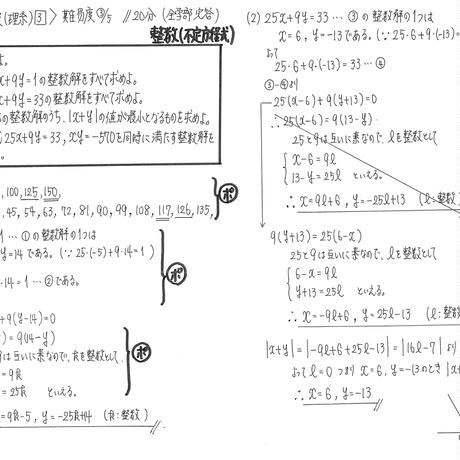 (理系) 3 > 難易度 3/5 // 20分 (全学部 必答)
整数(不定方程式)
よ。
x+9y=1の整数解をすべて求めよ。
x+9y=33の整数解をすべて求めよ。
の整数解のうち、|x+y|の値が最小となるものを求めよ。
25x+9y=33, xy=-570を同時に満たす整数解を
。
, 100, 125, 150,
, 45, 54, 63, 72, 81, 90, 99, 108, 117, 126, 135,
ポ
1 … ①の整数解の1つは
y=14 である。(∵ 25・(-5)+9・14=1)
・14=1 … ②である。
ポ
+9(y-14)=0
)=9(14-y)
9は互いに素なので、kを整数として、
=9k
=25k といえる。
ポ
=9k-5, y=-25k+14 (k:整数)
(2) 25x+9y=33 … ③の整数解の1つは
x=6, y=-13である。(∵ 25・6+9・(-13)
よって
25・6+9・(-13)=33 … ④
③-④より
25(x-6)+9(y+13)=0
∴ 25(x-6)=9(13-y)
25と9は互いに素なので、lを整数として
x-6=9l
13-y=25l といえる。
∴ x=9l+6, y=-25l+13 (l:整数)
9(y+13)=25(6-x)
25と9は互いに素なので、lを整数として
6-x=9l
y+13=25l といえる。
∴ x=-9l+6, y=25l-13 (l:整数
|x+y|=|-9l+6+25l-13|=|16l-7| より
よって l=0 つまり x=6, y=-13のとき |x+
∴ x=6, y=-13